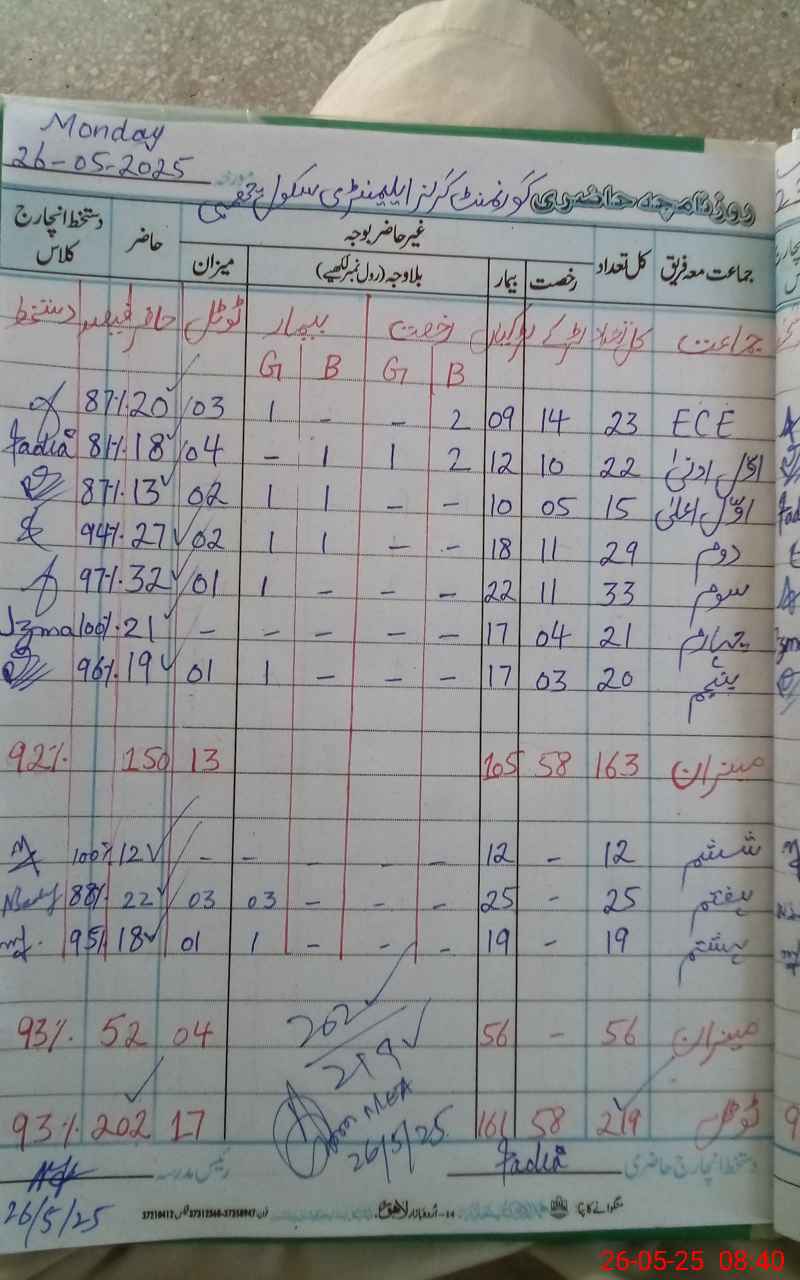 Monday
26-05-2025
روزنامچہ حاضری گورنمنٹ گرلز ایلیمنٹری سکول
جماعت معہ فریق کل تعداد غیر حاضر بوجہ حاضر دستخط انچارج کلاس
رخصت بیمار بلاوجہ (رول نمبر لکھیے) میزان
جماعت کل تعداد لڑکے لڑکیاں رخصت بیمار ٹوٹل حاضر فیصد دستخط
G B G B
87% 20 03 1 - - 2 09 14 23 ECE
Fadia 81% 18 04 - 1 1 2 12 10 22 اوّل ادنیٰ
87% 13 02 1 1 - - 10 05 15 اوّل اعلیٰ
94% 27 02 1 1 - - 18 11 29 دوم
97% 32 01 1 - - - 22 11 33 سوم
Izma 100% 21 - - - - - 17 04 21 چہارم
96% 19 01 1 - - - 17 03 20 پنجم
92% 150 13 105 58 163 میزان
100% 12 - - - - - 12 - 12 ششم
88% 22 03 03 - - - 25 - 25 ہفتم
95% 18 01 1 - - - 19 - 19 ہشتم
93% 52 04 56 - 56 میزان
202
219
93% 202 17 161 58 219 ٹوٹل
MEA
26/5/25
دستخط انچارج حاضری Fadia رئیس مدرسہ
26/5/25
منگوانے کا پتہ: اردو بازار لاہور فون 37312568-37358947 فیکس 37210412
26-05-25 08:40